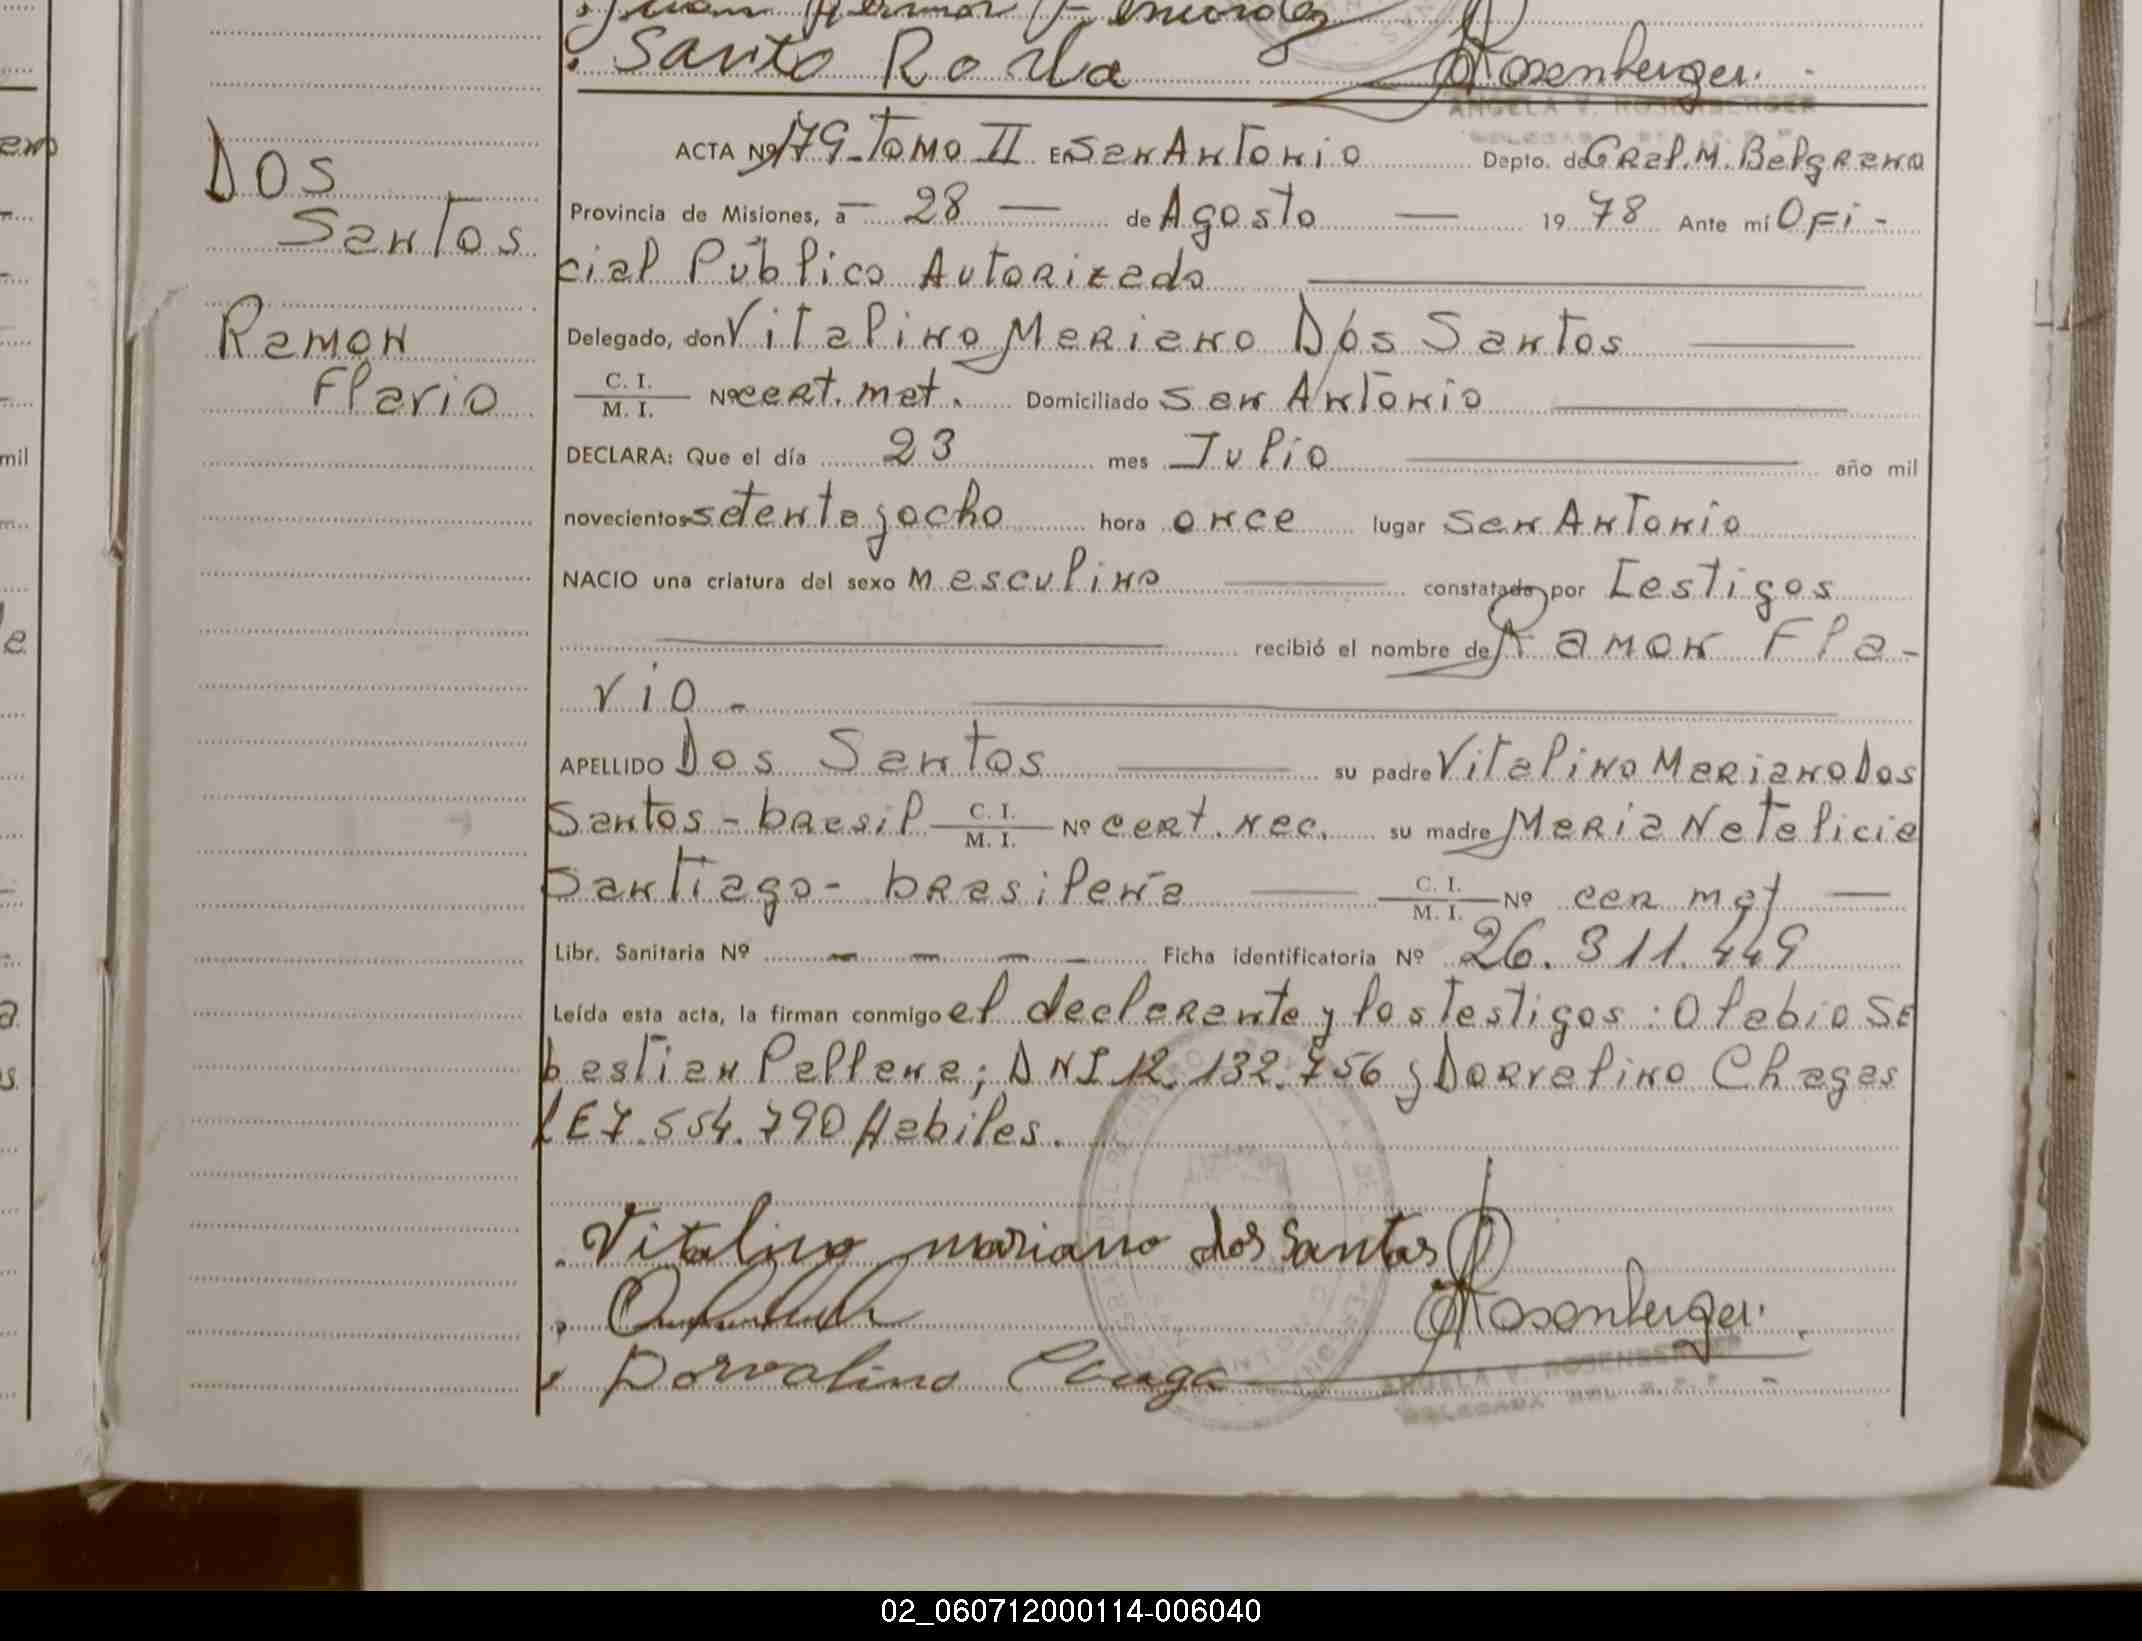 Santo Rocha
Rosenberger.
ANGELA V. ROSENBERGER
ACTA Nº 179 - Tomo II EN San Antonio Depto. de Gral. M. Belgrano
Dos
Santos
Ramon
Flavio
Provincia de Misiones, a — 28 — de Agosto — 19 78 Ante mí Ofi-
cial Público Autorizado
Delegado, don Vitalino Mariano Dos Santos
C. I. / M. I. Nº cert. mat. Domiciliado San Antonio
DECLARA: Que el día 23 mes Julio año mil
novecientos setenta y ocho hora once lugar San Antonio
NACIO una criatura del sexo masculino constatado por testigos
recibió el nombre de Ramon Fla-
vio -
APELLIDO Dos Santos su padre Vitalino Mariano Dos
Santos - brasil C. I. / M. I. Nº cert. nac. su madre Maria Natalicia
Santiago - brasileña C. I. / M. I. Nº cer mat —
Libr. Sanitaria Nº — — — — Ficha identificatoria Nº 26.311.449
Leída esta acta, la firman conmigo el declarante y los testigos: Olabio Se
bastian Pallana; DNI 12.132.756 y Dorvalino Chagas
LE 7.554.790 Habiles.
Vitalino mariano dos Santos
Rosenberger.
Dorvalino Chaga
ANGELA V. ROSENBERGER
02_060712000114-006040